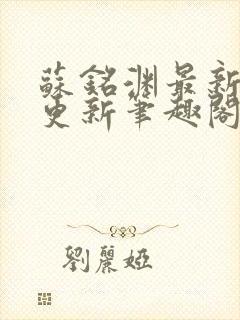 蘇銘淵最新
更新筆趣閣
劉麗婭